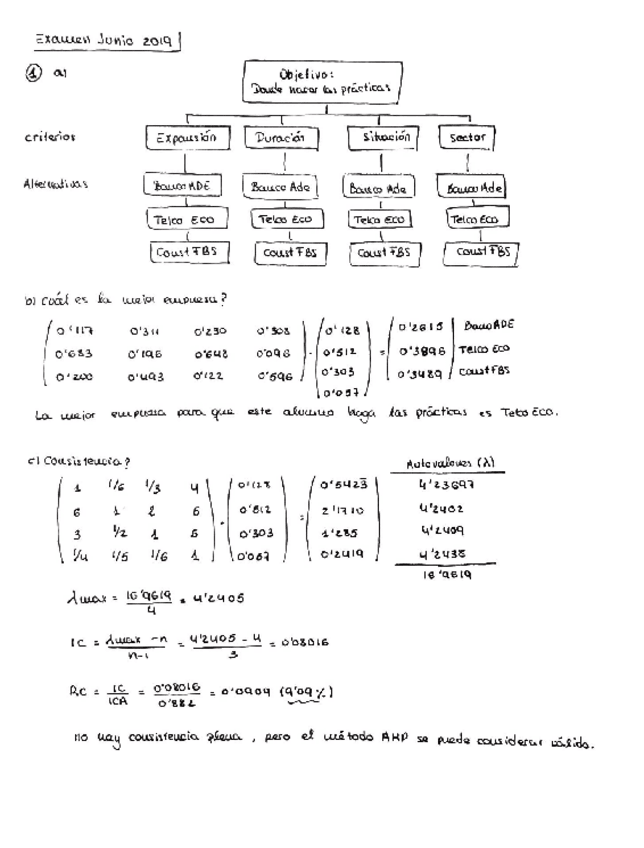 Examen Junio 2019
① a)
Objetivo:
Donde hacer las prácticas
criterios Expansión Duración Situación Sector
Alternativas Banco ADE Banco Ade Banco Ade Banco Ade
Telco ECO Telco ECO Telco ECO Telco ECO
Const FBS Const FBS Const FBS Const FBS
b) Cuál es la mejor empresa?
0'117 0'311 0'230 0'308 0'128 0'2615 Banco ADE
0'683 0'196 0'648 0'096 · 0'512 = 0'3896 Telco ECO
0'200 0'493 0'122 0'596 0'303 0'3489 Const FBS
0'057
La mejor empresa para que este alumno haga las prácticas es Telco Eco.
c) Consistencia?
Autovalores (λ)
1 1/6 1/3 4 0'128 0'5423 4'23697
6 1 2 5 · 0'512 = 2'1710 4'2402
3 1/2 1 5 0'303 1'285 4'2409
1/4 1/5 1/6 1 0'057 0'2419 4'2438
16'9619
λmax = 16'9619 / 4 = 4'2405
IC = λmax - n / n-1 = 4'2405 - 4 / 3 = 0'08016
RC = IC / ICA = 0'08016 / 0'882 = 0'0909 (9'09%)
no hay consistencia plena, pero el método AHP se puede considerar válido.